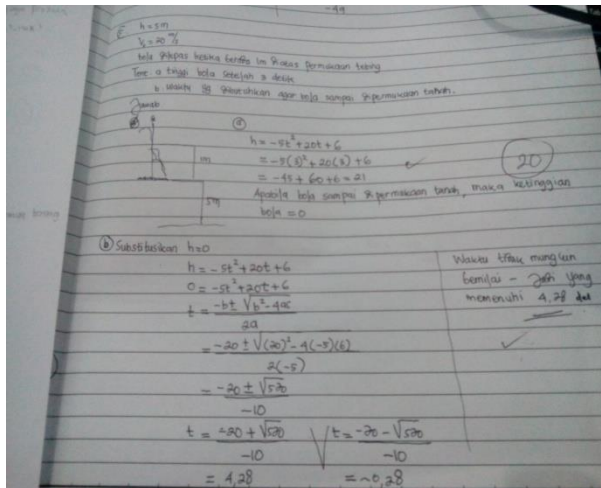 -4q
E. h = 5m
V₀ = 20 m/s
bola dilepas ketika berdiri 1m diatas permukaan tebing
Tent. a. tinggi bola setelah 3 detik
b. Waktu yg dibutuhkan agar bola sampai dipermukaan tanah.
Jawab
m
5m
ⓐ
h = -5t² + 20t + 6
= -5(3)² + 20(3) + 6 ✓
= -45 + 60 + 6 = 21
20
Apabila bola sampai dipermukaan tanah, maka ketinggian
bola = 0
ⓑ Substitusikan h = 0
h = -5t² + 20t + 6
0 = -5t² + 20t + 6
t = -b ± √b² - 4ac
2a
= -20 ± √(20)² - 4(-5)(6)
2(-5)
= -20 ± √520
-10
t = -20 + √520 t = -20 - √520
-10 -10
= 4,28 = -0,28
Waktu tidak mungkin
bernilai - Jadi yang
memenuhi 4,28
✓